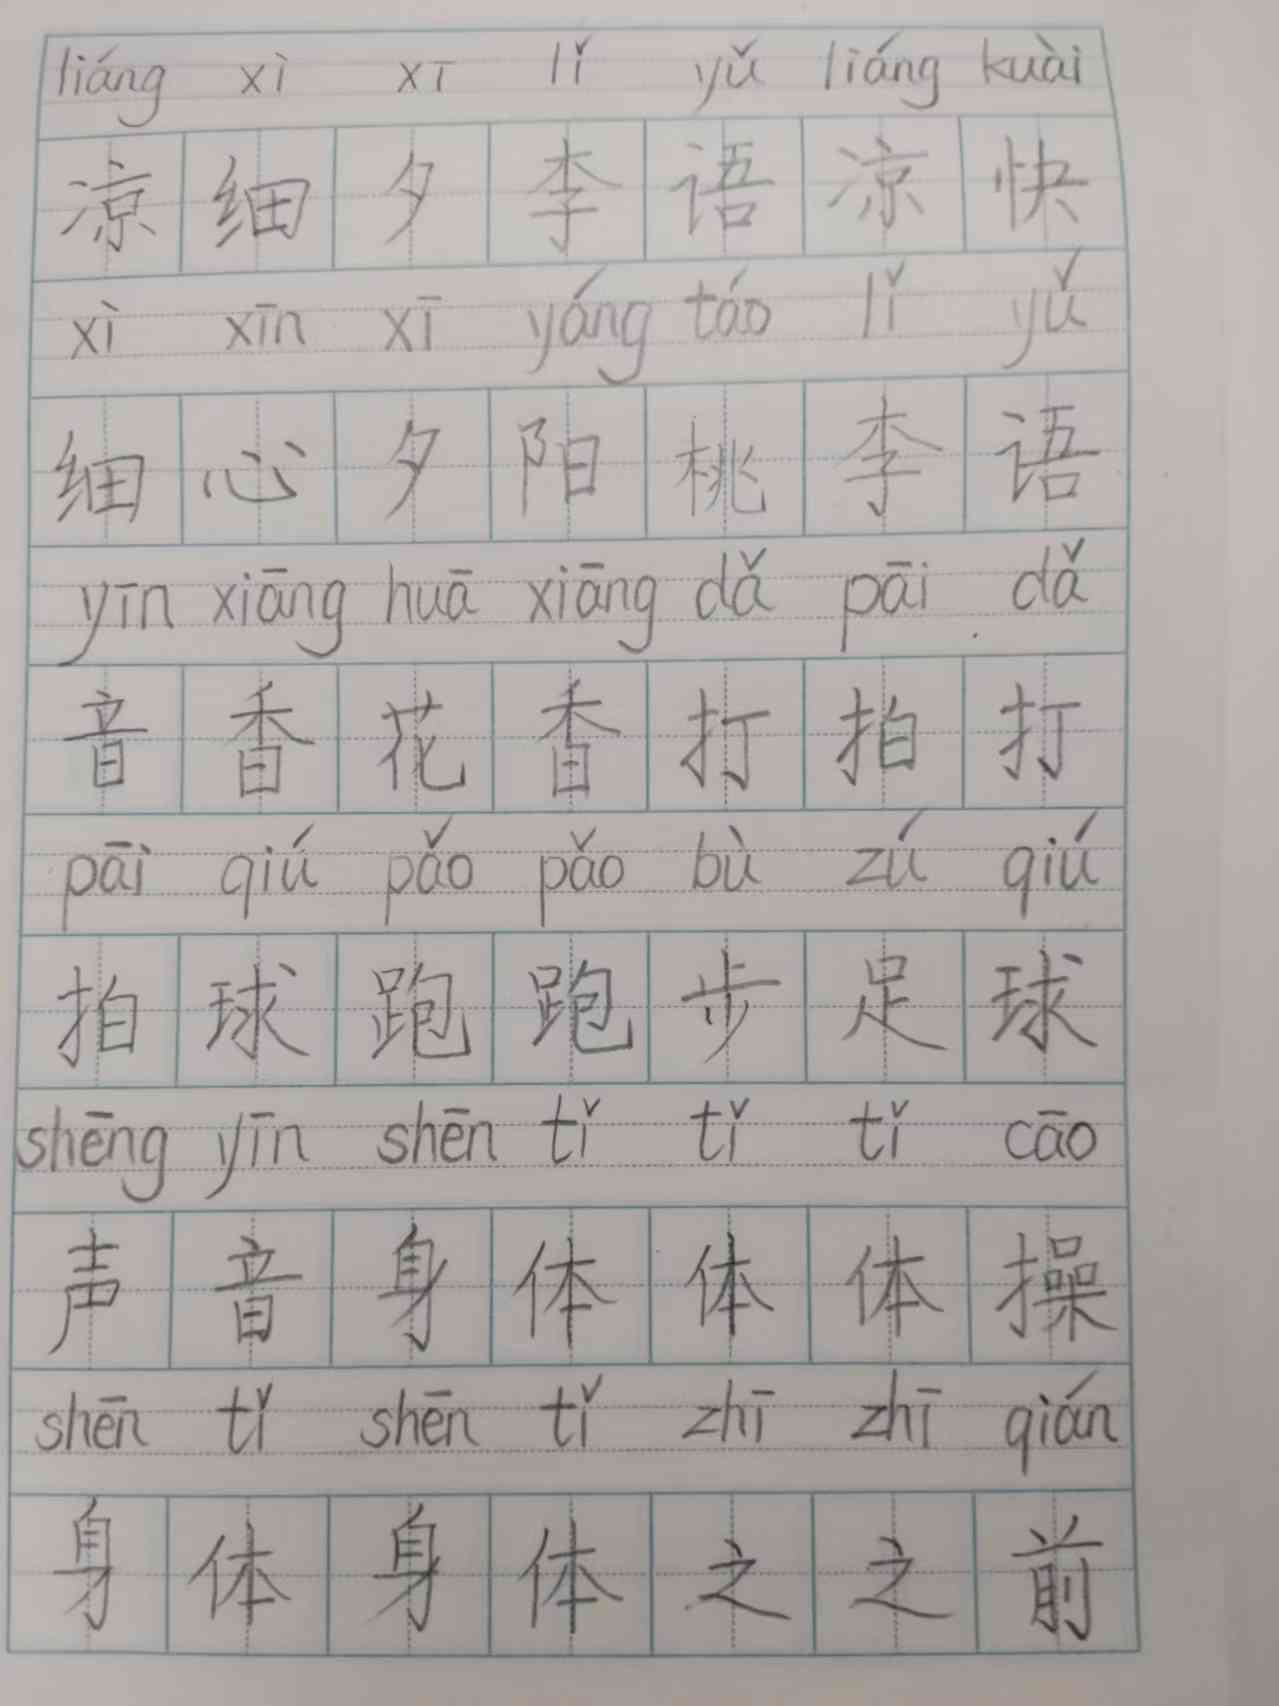 liáng xì xī lǐ yǔ liáng kuài
凉 细 夕 李 语 凉 快
xì xīn xī yáng táo lǐ yǔ
细 心 夕 阳 桃 李 语
yīn xiāng huā xiāng dǎ pāi dǎ
音 香 花 香 打 拍 打
pāi qiú pǎo pǎo bù zú qiú
拍 球 跑 跑 步 足 球
shēng yīn shēn tǐ tǐ tǐ cāo
声 音 身 体 体 体 操
shēn tǐ shēn tǐ zhī zhī qián
身 体 身 体 之 之 前